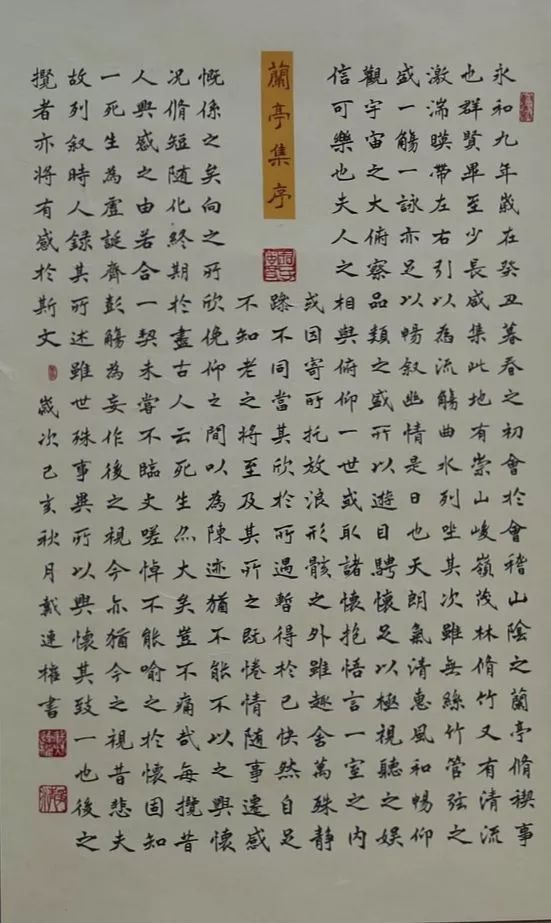 永和九年歲在癸丑暮春之初會於會稽山陰之蘭亭脩禊事
也群賢畢至少長咸集此地有崇山峻嶺茂林脩竹又有清流
激湍暎帶左右引以為流觴曲水列坐其次雖無絲竹管弦之
盛一觴一詠亦足以暢叙幽情是日也天朗氣清惠風和暢仰
觀宇宙之大俯察品類之盛所以遊目騁懷足以極視聽之娛
信可樂也夫人之相與俯仰一世或取諸懷抱悟言一室之內
蘭亭集序
或因寄所托放浪形骸之外雖趣舍萬殊靜
躁不同當其欣於所遇暫得於己快然自足
不知老之將至及其所之既惓情隨事遷感
慨係之矣向之所欣俛仰之間以為陳迹猶不能不以之興懷
况脩短隨化終期於盡古人云死生亦大矣豈不痛哉每攬昔
人興感之由若合一契未嘗不臨文嗟悼不能喻之於懷固知
一死生為虛誕齊彭觴為妄作後之視今亦猶今之視昔悲夫
故列叙時人録其所述雖世殊事異所以興懷其致一也後之
攬者亦將有感於斯文 歲次己亥秋月戴連權書